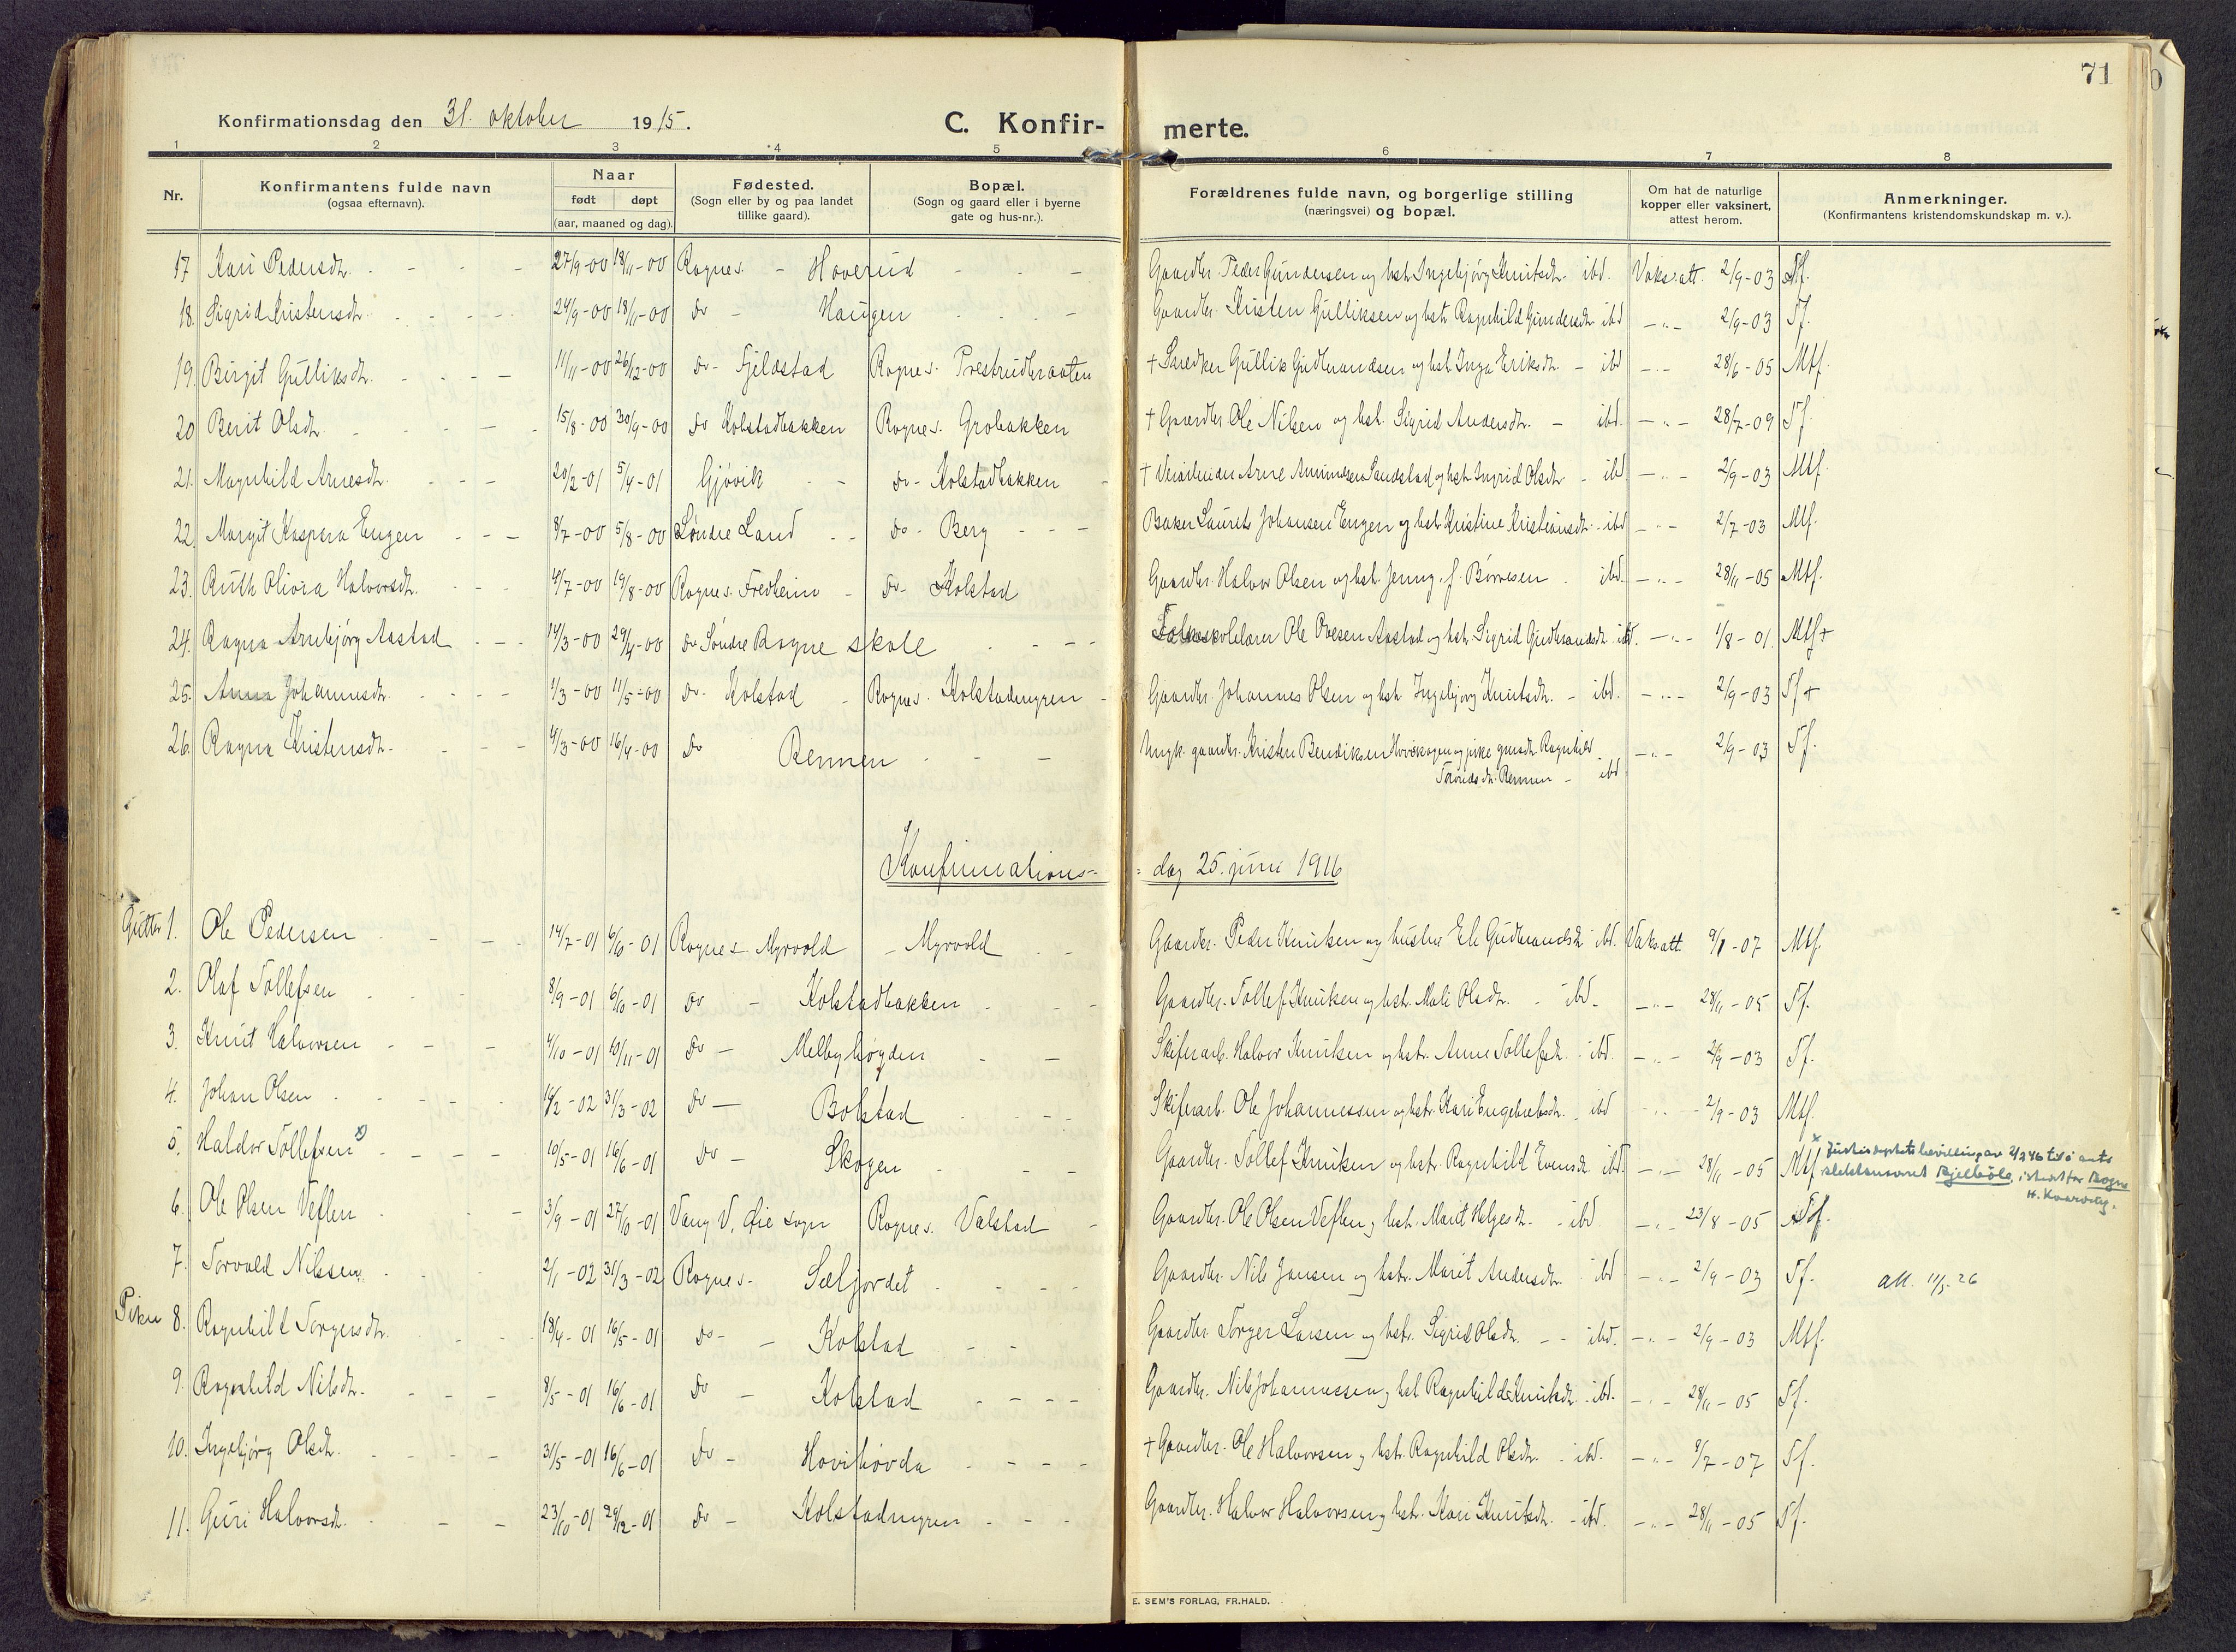 71
Konfirmationsdag den 31. oktober 1915.
C. Konfir- merte.
1 2 3 4 5 6 7 8
Nr.
Konfirmantens fulde navn
(ogsaa efternavn).
Naar
født døpt
(aar, maaned og dag).
Fødested.
(Sogn eller by og paa landet
tillike gaard).
Bopæl.
(Sogn og gaard eller i byerne
gate og hus-nr.).
Forældrenes fulde navn, og borgerlige stilling
(næringsvei) og bopæl.
Om hat de naturlige
kopper eller vaksinert,
attest herom.
Anmerkninger.
(Konfirmantens kristendomskundskap m. v.).
17 Kari Pedersdtr. 27/9-00 18/11-00 Rogne s. - Hoverud Gaardbr. Peder Gundersen og hstr. Ingebjørg Knutsdtr. ibd. Vaks.att. 2/9-03
18. Sigrid Kristensdtr. 24/9-00 18/11-00 Do - Haugen Gaardbr. Kristen Gulliksen og hstr. Ragnhild Gundersdtr. ibd -"- 2/9-03 Tf.
19. Birgit Gulliksdtr. 11/11-00 26/12-00 Do - Fjeldstad Rogne s. Prestrudbraaten + Snedker Gullik Gudbrandsen og hst. Inga Eriksdtr. - ibd -"- 28/6-05 Mtf.
20 Berit Olsdtr. 15/8-00 30/9-00 Do Kolstadbakken Rogne s. Grobakken + Gaardbr. Ole Nilsen og hst. Sigrid Andersdtr. - ibd. -"- 28/7-09 Tf.
21. Magnhild Arnesdtr. 20/2-01 5/4-01 Gjøvik Do - Kolstadbakken Arne Amundsen Sandstad og hstr. Ingrid Olsdtr. - ibd -"- 2/9-03 Mtf.
22. Margit Kaspara Engen 8/7-00 5/8-00 Søndre Land Do - Berg Baker Laurits Johansen Engen og hst. Kristine Kristiansdtr. - ibd -"- 2/7-03 Mtf.
23. Ruth Olivia Halvorsdtr. 4/7-00 19/8-00 Rogne s. Fredheim Do - Kolstad Gaardbr. Halvor Olsen og hst. Jenny, f. ibd. -"- 28/11-05 Mtf.
24. Ragna Arnbjørg Aastad 14/3-00 29/4-00 Do Søndre Rogne skole Folkeskolelærer Ole Ovesen Aastad og hstr. Sigrid Gudbrandsdtr. ibd. -"- 1/8-01. Mtf +
25. Anna Johannesdtr. 1/3-00 11/5-00 Do - Kolstad Rogne s. Kolstadengen Gaardbr. Johannes Olsen og hstr. Ingebjørg Knutsdtr. - ibd. -"- 2/9-03 Tf +
26. Ragna Kristensdtr. 4/3-00 16/4-00 Do Rennen Ungk. gaardbr. Kristen Bendiksen og pike Ragnhild
Rennen - ibd -"- 2/9-03 Tf.
Konfirmations- dag 25. juni 1916
Gutter 1. Ole Pedersen 14/7-01 6/10-01 Rogne s. Myrvold - Myrvold Gaardbr. Peder Knutsen og hustru Eli Gudbrandsdtr ibd. Vaks.att. Mtf.
2. Olaf Tollefsen 8/9-01 6/10-01 Do - Kolstadbakken Gaardbr. Tollef Knutsen og hstr. Mali Olsdtr. - ibd. -"- 28/11-05 Tf.
3. Knut Halvorsen 4/10-01 10/11-01 Do - Melbyhøgden Skiferarb. Halvor Knutsen og hstr. Anne Tollefsdtr. ibd. -"- 2/9-03 Tf.
4. Johan Olsen 14/2-02 31/3-02 Do - Bolstad Skiferarb. Ole Johannessen og hstr. Kari Engebretsdtr. ibd -"- 2/9-03 Mtf.
5. Haldor Tollefsen x) 10/5-01 16/6-01 Do - Skogen Gaardbr. Tollef Knutsen og hstr. Ragnhild Evensdtr. ibd. -"- 28/11-05 Mtf
x Justisdeptets bevilling av 2/246 til å anta
slektsnavnet Bjelbøle, istedetfor Rogne
6. Ole Olsen Veflen 3/9-01 27/10-01 Vang V. Øie sogn Rogne s. Valstad Gaardbr. Ole Olsen Veflen og hst. Marit Helgesdtr. - ibd -"- 23/8-05
7. Torvald Nilssen 2/1-02 31/3-02 Rogne s. Sæljordet Gaardbr. Nils Jansen og hstr. Marit Andersdtr. ibd -"- 2/9-03 Tf. att. 11/5-26
Piker 8. Ragnhild Torgersdtr. 18/4-01 16/5-01 Do - Kolstad Gaardbr. Torger Larsen og hstr. Sigrid Olsdtr. - ibd. -"- 2/9-03 Mtf.
9. Ragnhild Nilsdtr. 8/5-01 16/6-01 Do - Kolstad Gaardbr. Nils Johannessen og hst. Ragnhild Knutsdtr. ibd. -"- 28/11-05 Tf.
10. Ingebjørg Olsdtr. 31/5-01 16/6-01 Do - Hovihøvda + Gaardbr. Ole Halvorsen og hstr. Ragnhild Olsdtr. - ibd. -"- 9/7-07 Tf.
11. Guri Halvorsdtr. 23/10-01 29/12-01 Do - Kolstadengen Gaardbr. Halvor Halvorsen og hstr. Kari Knutsdtr. - ibd. -"- 28/11-05 Tf.
E. SEM'S FORLAG, FR.HALD.